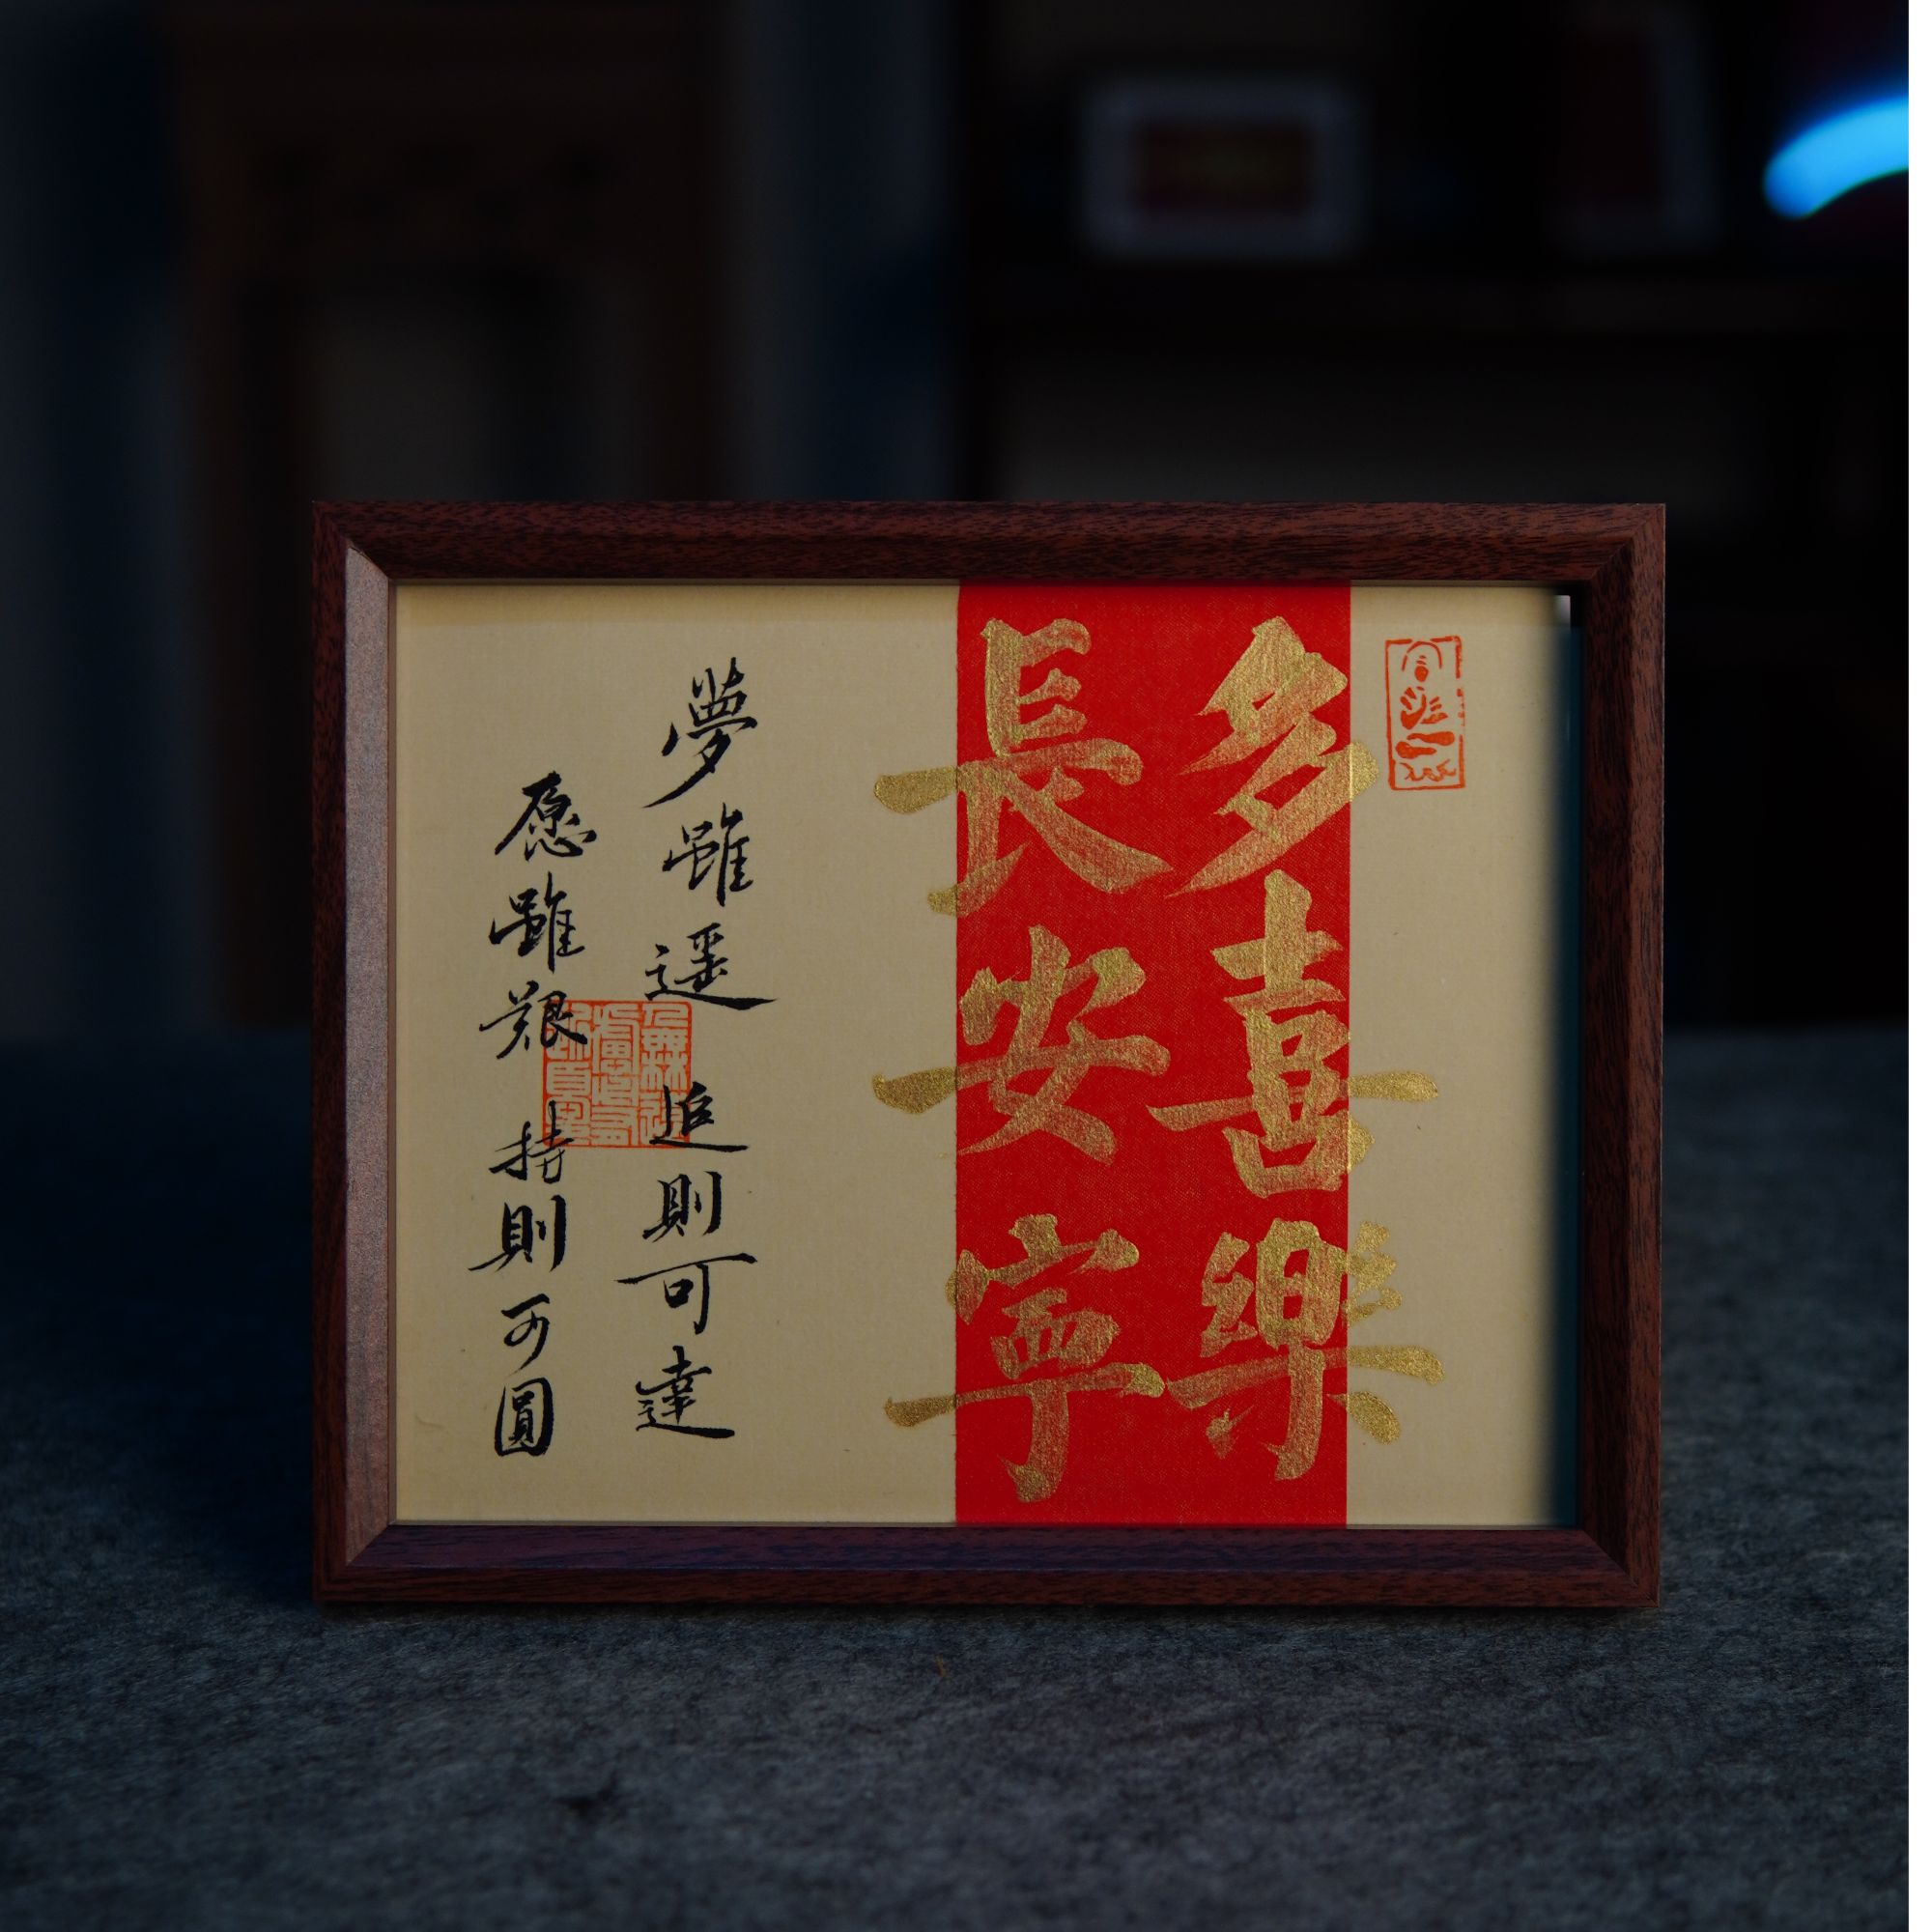 多喜樂
長安寧
夢雖遥 追則可達
愿雖艱 持則可圓